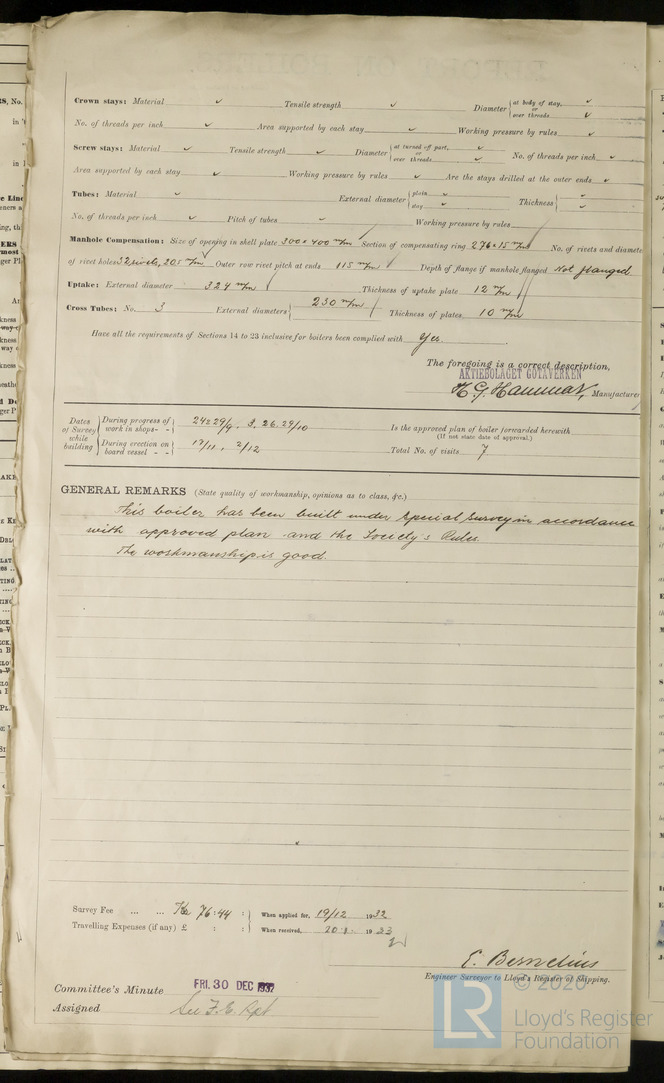 Crown stays: Material ✓ Tensile strength ✓ Diameter { at body of stay, ✓ or over threads ✓
No. of threads per inch ✓ Area supported by each stay ✓ Working pressure by rules ✓
Screw stays: Material ✓ Tensile strength ✓ Diameter { at turned off part, ✓ or over threads ✓ No. of threads per inch ✓
Area supported by each stay ✓ Working pressure by rules ✓ Are the stays drilled at the outer ends ✓
Tubes: Material ✓ External diameter { plain ✓ stay ✓ Thickness { ✓ ✓
No. of threads per inch ✓ Pitch of tubes ✓ Working pressure by rules
Manhole Compensation: Size of opening in shell plate 300 x 400 m/m Section of compensating ring 276 x 15 m/m No. of rivets and diamete
of rivet holes 32 rivets, 20.5 m/m Outer row rivet pitch at ends 115 m/m Depth of flange if manhole flanged Not flanged
Uptake: External diameter 324 m/m Thickness of uptake plate 12 m/m
Cross Tubes: No. 3 External diameters { 230 m/m Thickness of plates 10 m/m
Have all the requirements of Sections 14 to 23 inclusive for boilers been complied with Yes.
The foregoing is a correct description,
AKTIEBOLAGET GÖTAVERKEN
H.G. Hammar, Manufacturer
Dates of Survey while building { During progress of work in shops - - } 24 29/9, 3. 26. 29/10 Is the approved plan of boiler forwarded herewith
(If not state date of approval.)
During erection on board vessel - - } 17/11, 2/12 Total No. of visits 7
GENERAL REMARKS (State quality of workmanship, opinions as to class, &c.)
This boiler has been built under Special Survey in accordance
with approved plan and the Society's Rules.
The workmanship is good.
Survey Fee ... ... Kr 76:44 : } When applied for, 19/12 1932
Travelling Expenses (if any) £ : : } When received, 20.1. 1933
E. Bernelius
Engineer Surveyor to Lloyd's Register of Shipping.
Committee's Minute FRI. 30 DEC 1932
Assigned See F.E. Rpt.
LR © 2020
Lloyd's Register
Foundation